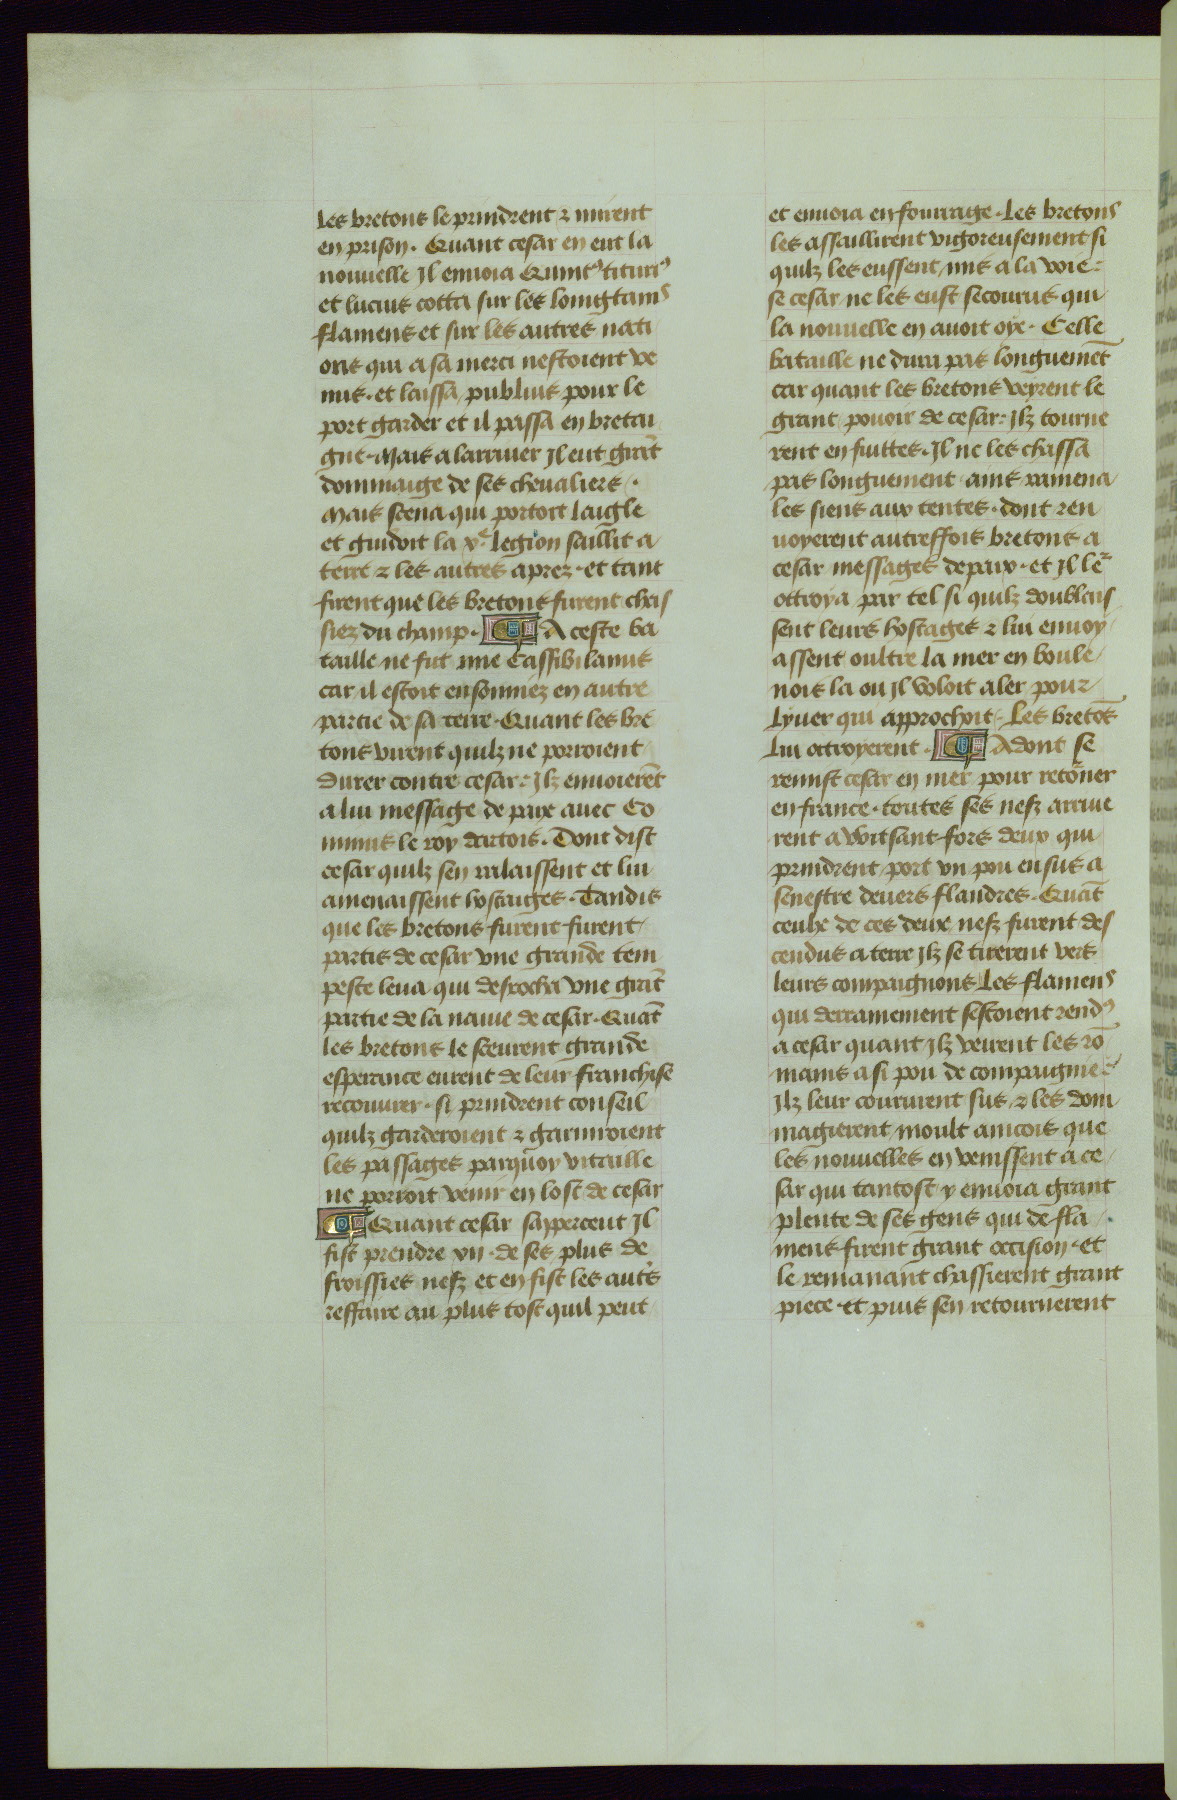 les bretons le prindrent ⁊ mirent
en prison. Quant cesar en eut la
nouuelle Jl enuoia Quintꝰ titurꝰ
et lucius cotta sur les loingtains
flamens et sur les autres nati
ons qui a sa merci nestoient ve
nus. et laissa publius pour le
port garder et il passa en bretai
gne. Mais a larriuer Jl eut grāt
dommaige de ses cheualiers.
Mais scena qui portoit laigle
et guidoit la xe. legion saillit a
terre ⁊ les autres aprez. et tant
firent que les bretons furent chas
siez du champ. A ceste ba
taille ne fut mie Cassibilanus
car il estoit ensonniez en autre
partie de sa terre. Quant les bre
tons virent quilz ne porroient
Durer contre cesar: Jlz enuoierēt
a lui message de paix auec Co
mius le roy dartois. Dont dist
cesar quilz sen ralaissent et lui
amenaissent hostaiges. Tandis
que les bretons furent furent
partis de cesar vne grande tem
peste leua qui desrocha vne grāt
partie de la nauie de cesar. Quāt
les bretons le sceurent grande
esperance eurent de leur franchise
recouurer. si prindrent conseil
quilz garderoient ⁊ garniroient
les passages parquoy vitaille
ne porroit venir en lost de cesar
Quant cesar sappercent Jl
fist prendre vn. de ses plus de
froissies nefz et en fist les autꝰs
reffaire au plus tost quil peut
et enuoia en fourrage. Les bretons
les assaillirent vigoreusement si
quilz les eussent mis a la voie:
se cesar ne les eust secourus qui
la nouuelle en auoit oye. Celle
bataille ne dura pas longuemēt
car quant les bretons veyrent le
grant pouoir de cesar: Jlz tourne
rent en fuittes. Jl ne les chassa
pas longuement ains ramena
les siens aux tentes. dont ren
uoyerent autreffois bretons a
cesar messages de paix. et Jl le2
ottroya par tel si quilz doublais
sent leurs hostages ⁊ lui enuoy
assent oultre la mer en boule
nois la ou Jl voloit aler pour
Lyuer qui approchoit. Les bretōs
lui ottroyerent. Adont se
remist cesar en mer pour retōner
en france. toutes ses nefz arriue
rent a Witsant fors deux qui
prindrent port vn pou ensus a
senestre deuers flandres. Quāt
ceulx de ces deux nefz furent des
cendus a terre Jlz se tirerent vers
leurs compaignons Les flamens
qui derrainement sestoient rendꝰ
a cesar quant Jlz veirent les rō
mains a si pou de compaignie:
Jlz leur coururent sus ⁊ les dom
magierent moult aincois que
les nouuelles en venissent a ce
sar qui tantost y enuoia grant
plente de ses gens qui de fla
mens firent grant occision. et
le remanant chassierent grant
piece. et puis sen retournerent